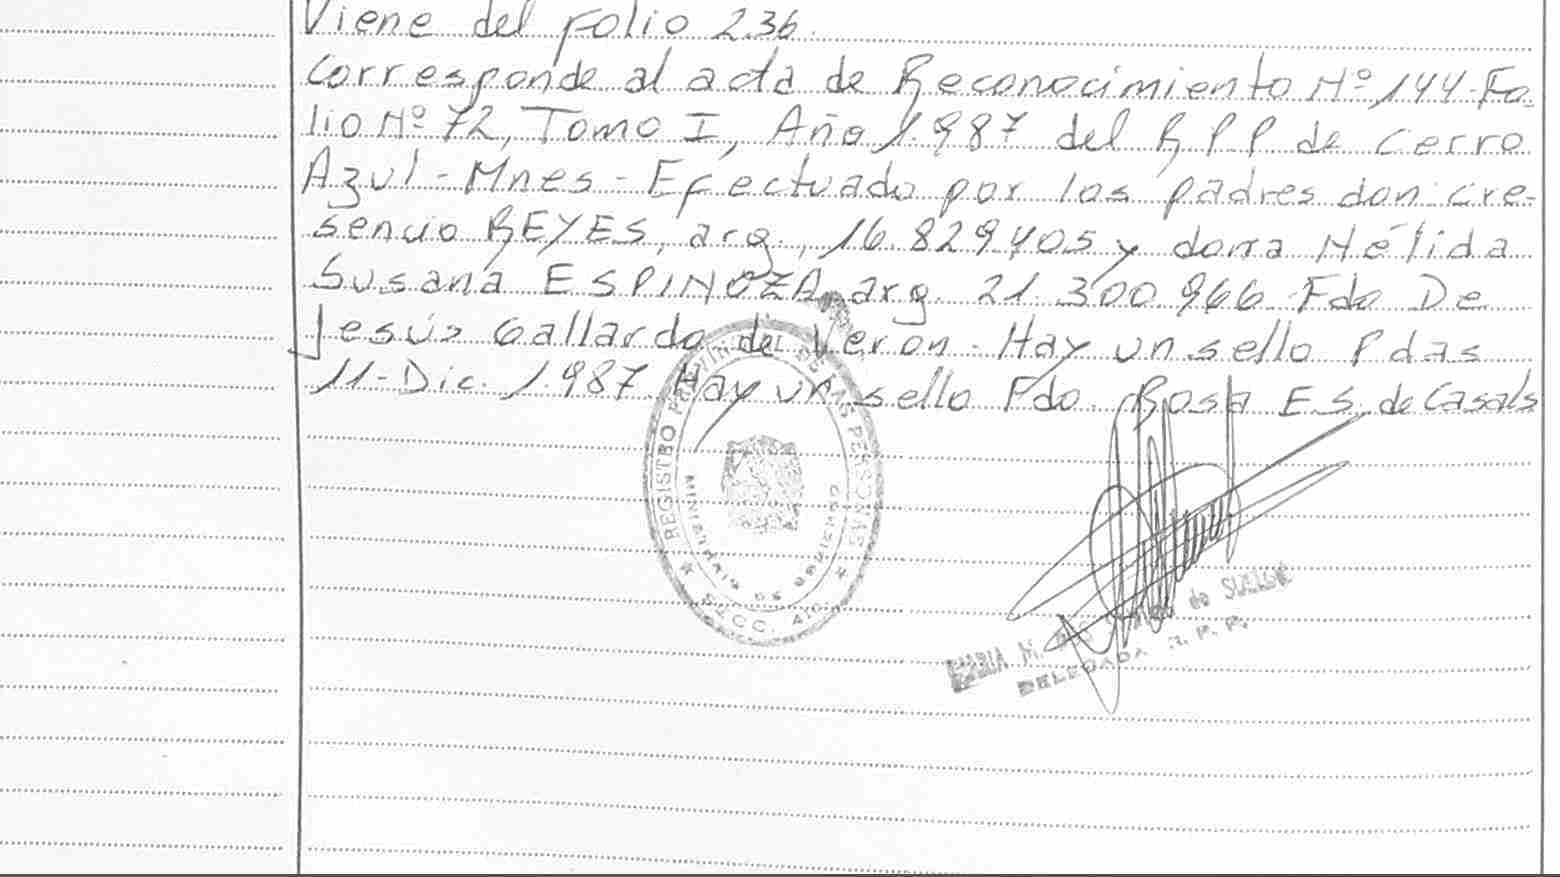 Viene del Folio 236.
Corresponde al acta de Reconocimiento Nº 144-Fo-
lio Nº 72, Tomo I, Año 1.987 del R P P de Cerro
Azul - Mnes - Efectuado por los padres don Cre-
sencio REYES, arg., 16.829.405 y doña Nélida
Susana ESPINOZA, arg. 21.300.966 Fdo De
Jesús Gallardo de Veron - Hay un sello Pdas
11-Dic. 1.987 Hay un sello Fdo. Rosa E S. de Casals
REGISTRO PROVINCIAL DE LAS PERSONAS
MINISTERIO DE GOBIERNO
SECC.
MARIA M. de
DELEGADA R. P. P.